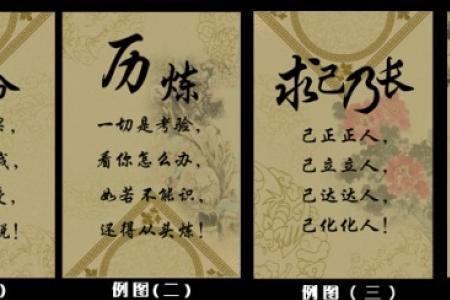 历炼
一切是考验，
看你怎么办，
如若不能识，
还得从头炼！
例图(二)
求己乃长
己正正人，
己立立人，
己达达人，
己化化人！
例图（三）